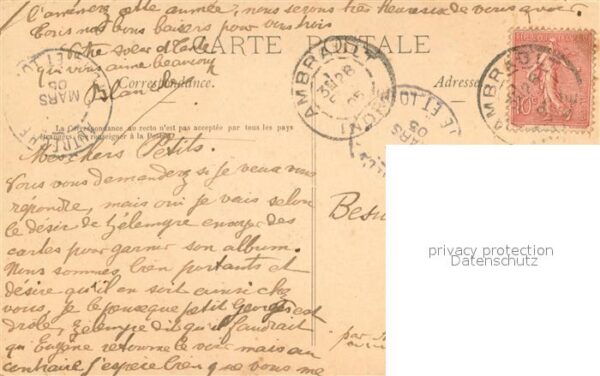 t'amènez cette année, nous serons très heureux de vous avoir
Tous nos bons baisers pour vous trois
Votre sœur et tante
qui vous aime beaucoup
Blanche
CARTE POSTALE
Correspondance.
Adresse
La Correspondance au recto n'est pas acceptée par tous les pays
étrangers. (Se renseigner à la Poste)
AMBRAULT
28
05
AMBRAULT
28
MARS
05
MARS
05
10
Mes chers Petits.
Vous vous demanderez si je veux vous
répondre, mais oui je vais selon
le désir de Zélemyre envoyer des
cartes pour garnir son album.
Nous sommes bien portants et
désire qu'il en soit ainsi chez
vous, je le pense que petit Georges est
drôle, Zélemyre dit qu'il faudrait
qu'Eugène retourne le voir mais au
contraire j'espère bien que vous me
privacy protection
Datenschutz